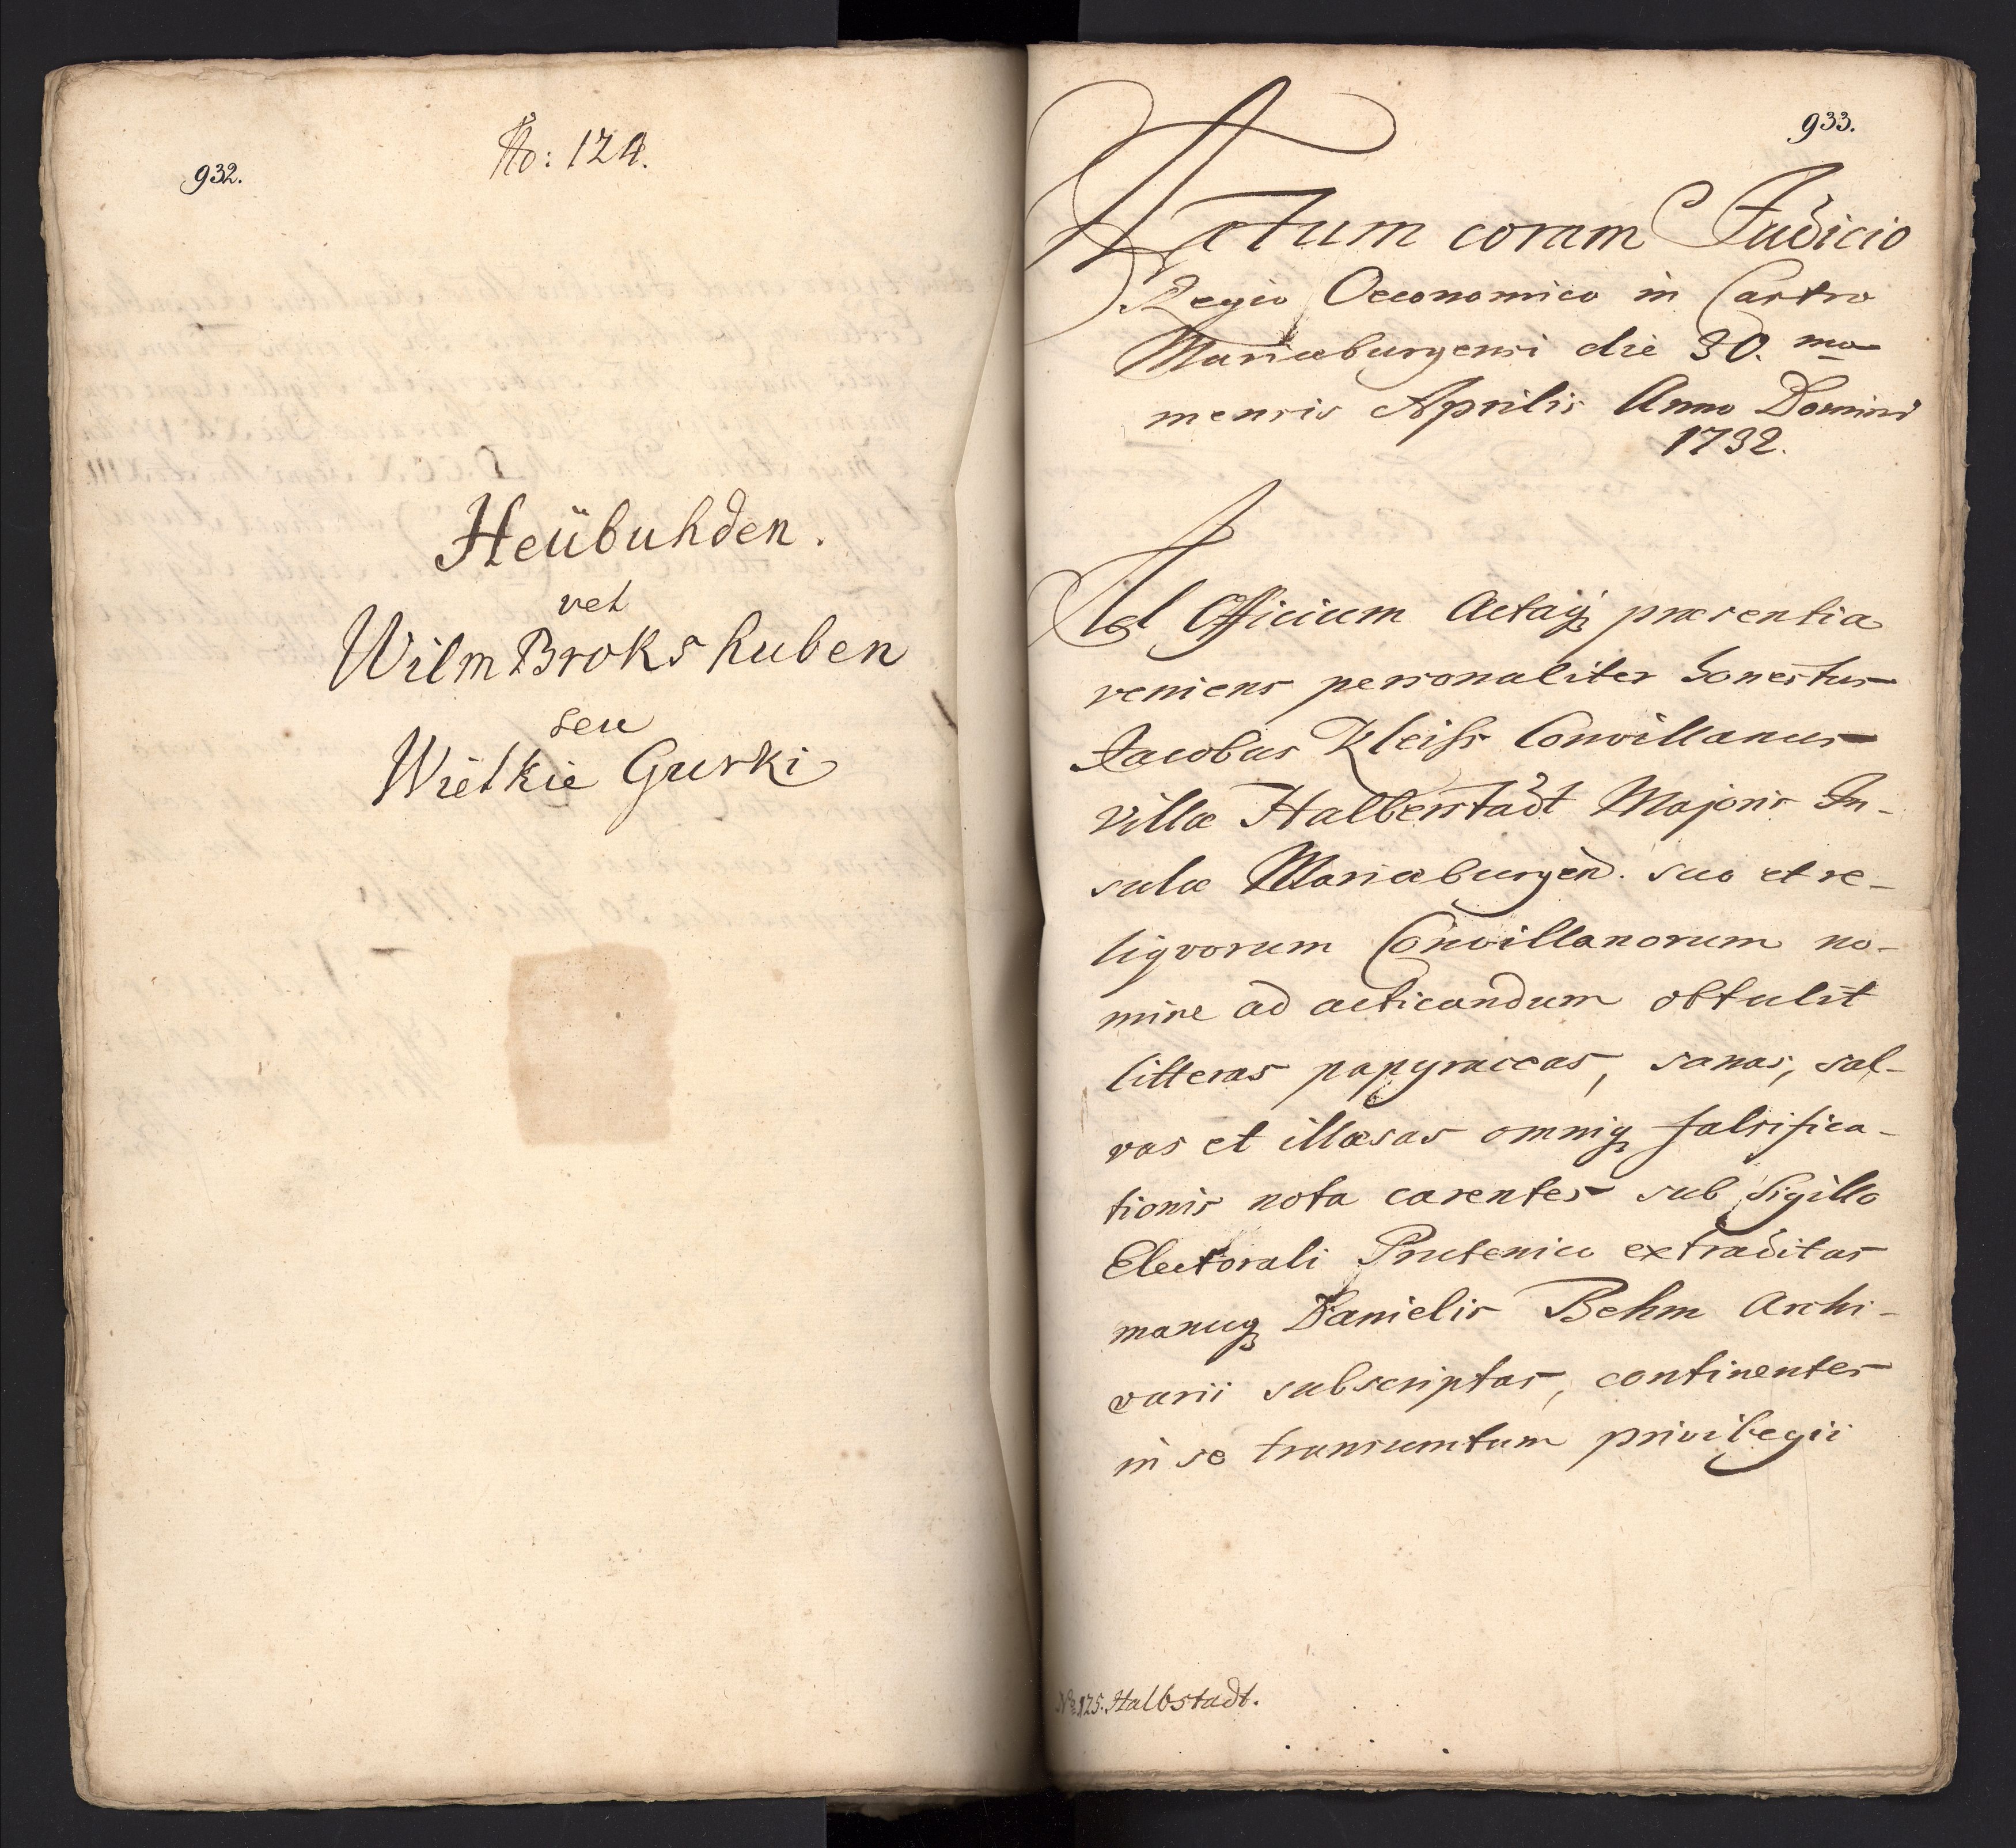 932.
No: 124.
Heübuhden.
vel
WilmBrokshuben
seu
Wielkie Gurki
933.
Actum coram Judicio
Regio Oeconomico in Castro
Mariaeburgensi die 30. ma
mensis Aprilis Anno Domini
1732.
Ad Officium Actaq; praesentia
veniens personaliter honestus
Jacobus Kleiss Convillanus
villae Halberstadt Majoris In-
sulae Mariaeburgen̄. suo et re-
liqvorum Convillanorum no-
mine ad acticandum obtulit
litteras papyraceas, sanas, sal-
vas et illaesas omniq; falsifica-
tionis nota carentes sub Sigillo
Electorali Prutenico extraditas
manuq; Danielis Behm Archi-
varii subscriptas, continentes
in se transumtum privilegii
No 125. Halbstadt.